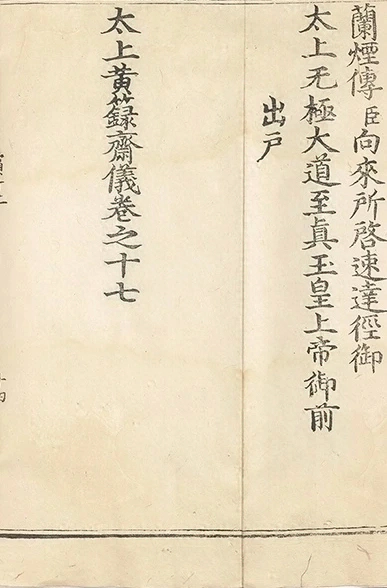 蘭煙傳臣向來所啓速達徑御
太上无極大道至眞玉皇上帝御前
出戶
太上黃籙齋儀卷之十七